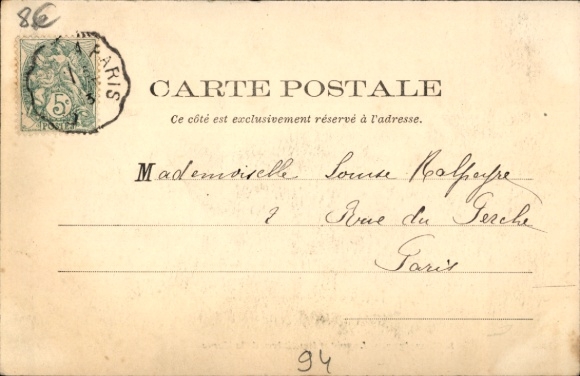 8€
A PARIS
3
5c
POSTES
CARTE POSTALE
Ce côté est exclusivement réservé à l'adresse.
Mademoiselle Louise Malpeyre
2 Rue du Perche
Paris
94